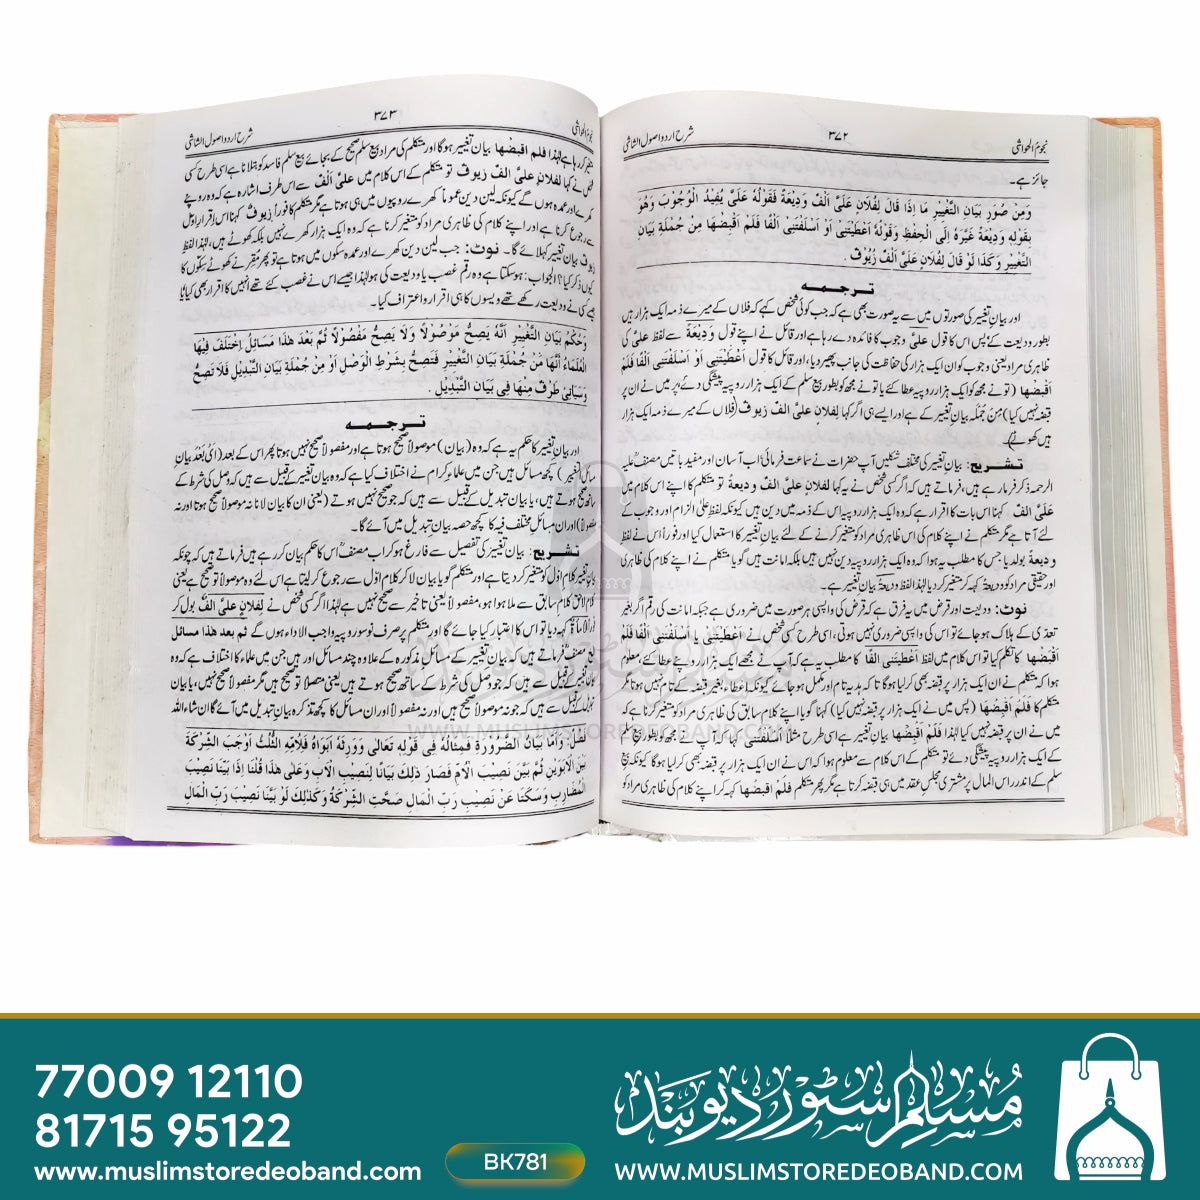 نجوم الحواشی ۳۷۲ شرح اردو اصول الشاشی
جائز ہے۔
وَمِنْ صُوَرِ بَيَانِ التَّغْيِيرِ مَا إِذَا قَالَ لِفُلَانٍ عَلَيَّ أَلْفٌ وَدِيعَةً فَقَوْلُهُ عَلَيَّ يُفِيدُ الْوُجُوبَ وَهُوَ
بِقَوْلِهِ وَدِيعَةً غَيَّرَهُ إِلَى الْحِفْظِ وَقَوْلُهُ أَعْطَيْتَنِي أَوْ أَسْلَفْتَنِي أَلْفًا فَلَمْ أَقْبِضْهَا مِنْ جُمْلَةِ بَيَانِ
التَّغْيِيرِ وَكَذَا لَوْ قَالَ لِفُلَانٍ عَلَيَّ أَلْفٌ زُيُوفٌ.
ترجمه
اور بیان تغییر کی صورتوں میں سے یہ صورت بھی ہے کہ جب کوئی شخص کہے کہ فلاں کے میرے ذمہ ایک ہزار ہیں
بطور ودیعت کے، پس اس کا قول علیَّ وجوب کا فائدہ دے رہا ہے اور قائل نے اپنے قول وَدِیْعَةً سے لفظ علیَّ کی
ظاہری مراد یعنی وجوب کو ان ایک ہزار کی حفاظت کی جانب پھیر دیا، اور قائل کا قول اَعْطَیْتَنِیْ اَوْ اَسْلَفْتَنِیْ اَلْفًا فَلَمْ
اَقْبِضْهَا (تو نے مجھ کو ایک ہزار روپیہ عطا کئے یا تو نے مجھ کو بطور بیع سلم کے ایک ہزار روپیہ پیشگی دئے، پر میں نے ان پر
قبضہ نہیں کیا) مِنْ جُمْلَہ بیان تغییر کے ہے اور ایسے ہی اگر کہا لِفلانٍ علیَّ الفٌ زیوفٌ (فلاں کے میرے ذمہ ایک ہزار
ہیں کھوٹے)۔
تشریح: بیان تغییر کی مختلف شکلیں آپ حضرات نے سماعت فرمائی، اب آسان اور مفید باتیں مصنف علیہ
الرحمہ ذکر فرما رہے ہیں، فرماتے ہیں کہ اگر کسی شخص نے یہ کہا لفلانٍ علیَّ الفٌ ودیعةً تو متکلم کا اپنے اس کلام میں
عَلَیَّ اَلْفٌ کہنا اس بات کا اقرار ہے کہ وہ ایک ہزار روپیہ اس کے ذمہ میں دین ہیں کیونکہ لفظ علیٰ الزام اور وجوب کے
لئے آتا ہے مگر متکلم نے اپنے کلام کی اس ظاہری مراد کو متغیر کرنے کے لئے بیان تغییر کا استعمال کیا اور فوراً اس نے لفظ
ودیعة بولدیا، جس کا مطلب یہ ہوا کہ وہ ایک ہزار روپیہ دین نہیں ہیں بلکہ امانت ہیں گویا متکلم نے اپنے کلام کی ظاہری
اور حقیقی مراد کو ودیعةً کہہ کر متغیر کر دیا لہٰذا لفظ ودیعةً بیان تغییر ہے۔
نوٹ: ودیعت اور قرض میں یہ فرق ہے کہ قرض کی واپسی ہر صورت میں ضروری ہے جبکہ امانت کی رقم اگر بغیر
تعدّی کے ہلاک ہو جائے تو اس کی واپسی ضروری نہیں ہوتی، اسی طرح کسی شخص نے اَعْطَیْتَنِیْ یا اَسْلَفْتَنِیْ اَلْفًا فَلَمْ
اَقْبِضْهَا کا تکلم کیا تو اس کلام میں لفظ اَعْطَیْتَنِیْ اَلْفًا کا مطلب یہ ہے کہ آپ نے مجھے ایک ہزار روپئے عطا کئے، معلوم
ہوا کہ متکلم نے ان ایک ہزار پر قبضہ بھی کر لیا ہوگا تاکہ ہدیہ تام اور مکمل ہو جائے کیونکہ اعطاء بغیر قبضہ کے تام نہیں ہوتا مگر
متکلم کا فَلَمْ اَقْبِضْهَا (پس میں نے ایک ہزار پر قبضہ نہیں کیا) کہنا گویا اپنے کلام سابق کی ظاہری مراد کو متغیر کرنا ہے کہ
میں نے ان پر قبضہ نہیں کیا لہٰذا فَلَمْ اَقْبِضْهَا بیان تغییر ہے اسی طرح مثلاً اَسْلَفْتَنِیْ کہا کہ آپ نے مجھ کو بطور بیع
سلم کے ایک ہزار روپیہ پیشگی دئے تو متکلم کے اس کلام سے معلوم ہوا کہ اس نے ان ایک ہزار پر قبضہ بھی کر لیا ہوگا کیونکہ بیع
سلم کے اندر راس المال پر مشتری مجلس عقد میں ہی قبضہ کرتا ہے مگر پھر متکلم فلم اقبضها کہہ کر اپنے کلام کی ظاہری مراد کو
نجوم الحواشی ۳۷۳ شرح اردو اصول الشاشی
متغیر کر رہا ہے لہٰذا فلم اقبضها بیان تغییر ہوگا اور متکلم کی مراد بیع سلم صحیح کے بجائے بیع سلم فاسد کو بتلانا ہے اسی طرح کسی
شخص نے کہا لفلانٍ علیَّ الفٌ زیوفٌ تو متکلم کے اس کلام میں علیَّ اَلْفٌ سے اس طرف اشارہ ہے کہ وہ روپئے
کھرے اور عمدہ ہوں گے کیونکہ لین دین عموماً کھرے روپیوں میں ہی ہوتا ہے مگر متکلم کا فوراً زیوفٌ کہنا اس اقرار اول
سے رجوع کرنا ہے اور اپنے کلام کی ظاہری مراد کو متغیر کرنا ہے کہ وہ ایک ہزار کھرے نہیں بلکہ کھوٹے ہیں، لہٰذا لفظ
زیوف بیان تغییر کہلائے گا۔ نوٹ: جب لین دین کھرے اور عمدہ سکوں میں ہوتا ہے تو پھر مُقِر نے کھوٹے سِکّوں کا
کیوں ذکر کیا؟ الجواب: ہو سکتا ہے وہ رقم غصب یا ودیعت کی ہو لہٰذا جیسے اس نے غصب کئے تھے انہیں کا اقرار بھی کیا یا
جیسے کسی نے ودیعت رکھے تھے ویسوں کا ہی اقرار و اعتراف کیا۔
وَحُكْمُ بَيَانِ التَّغْيِيرِ أَنَّهُ يَصِحُّ مَوْصُولًا وَلَا يَصِحُّ مَفْصُولًا ثُمَّ بَعْدَ هٰذَا مَسَائِلُ اِخْتَلَفَ فِيهَا
الْعُلَمَاءُ أَنَّهَا مِنْ جُمْلَةِ بَيَانِ التَّغْيِيرِ فَتَصِحُّ بِشَرْطِ الْوَصْلِ أَوْ مِنْ جُمْلَةِ بَيَانِ التَّبْدِيلِ فَلَا تَصِحُّ
وَسَيَأْتِي طَرَفٌ مِنْهَا فِي بَيَانِ التَّبْدِيلِ.
ترجمه
اور بیان تغییر کا حکم یہ ہے کہ وہ (بیان) موصولاً صحیح ہوتا ہے اور مفصولاً صحیح نہیں ہوتا پھر اس کے بعد (اَیْ بَعْدَ بیانِ
مسائل التغییر) کچھ مسائل ہیں جن میں علماء کرام نے اختلاف کیا ہے کہ وہ بیان تغییر کے قبیل سے ہیں کہ وصل کی شرط کے
ساتھ صحیح ہوتے ہیں، یا بیان تبدیل کے قبیل سے ہیں کہ جو صحیح نہیں ہوتے (یعنی ان کا بیان لانا نہ موصولاً صحیح ہوتا اور نہ
مفصولاً) اور ان مسائل مختلف فیہ کا کچھ حصہ بیان تبدیل میں آئے گا۔
تشریح: بیان تغییر کی تفصیل سے فارغ ہو کر اب مصنفؒ اس کا حکم بیان کر رہے ہیں فرماتے ہیں کہ چونکہ
بیان تغییر کلام اوّل کو متغیر کر دیتا ہے اور متکلم گویا بیان لا کر کلام اوّل سے رجوع کر لیتا ہے اس لئے وہ موصولاً صحیح ہے یعنی
کلام لاحق کلام سابق سے ملا ہوا ہو، مفصولاً یعنی تاخیر سے صحیح نہیں ہے لہٰذا اگر کسی شخص نے لِفلانٍ علیَّ الفٌ بول کر
کہہ دیا تو اس کا اعتبار کیا جائے گا اور متکلم پر صرف نو سو روپیہ واجب الاداء ہوں گے ثم بعد هذا مسائل
مصنفؒ فرماتے ہیں کہ بیان تغییر کے مسائل مذکورہ کے علاوہ چند مسائل اور ہیں جن میں علماء کا اختلاف ہے کہ وہ
تغییر کے قبیل سے ہیں کہ جو وصل کی شرط کے ساتھ صحیح ہوتے ہیں یعنی متصلاً تو صحیح ہیں مگر مفصولاً صحیح نہیں، یا بیان
تبدیل کے قبیل سے ہیں کہ جو نہ موصولاً صحیح ہیں اور نہ مفصولاً اور ان مسائل کا کچھ تذکرہ بیان تبدیل میں آئے گا انشاء اللہ
فَصْلٌ. وَأَمَّا بَيَانُ الضَّرُورَةِ فَمِثَالُهُ فِي قَوْلِهِ تَعَالَى وَوَرِثَهُ أَبَوَاهُ فَلِأُمِّهِ الثُّلُثُ أَوْجَبَ الشِّرْكَةَ
بَيْنَ الْأَبَوَيْنِ ثُمَّ بَيَّنَ نَصِيبَ الْأُمِّ فَصَارَ ذٰلِكَ بَيَانًا لِنَصِيبِ الْأَبِ وَعَلَى هٰذَا قُلْنَا إِذَا بَيَّنَا نَصِيبَ
الْمُضَارِبِ وَسَكَتَا عَنْ نَصِيبِ رَبِّ الْمَالِ صَحَّتِ الشِّرْكَةُ وَكَذٰلِكَ لَوْ بَيَّنَا نَصِيبَ رَبِّ الْمَالِ
WWW.MUSLIMSTOREDEOBAND.COM
77009 12110
81715 95122
www.muslimstoredeoband.com
BK781
مسلم سٹور دیوبند
WWW.MUSLIMSTOREDEOBAND.COM